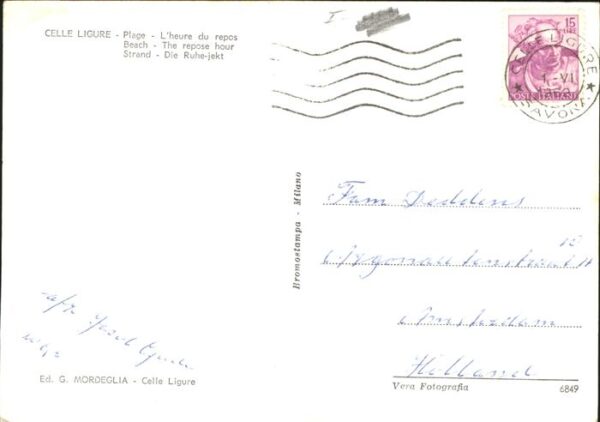 CELLE LIGURE - Plage - L'heure du repos
Beach - The repose hour
Strand - Die Ruhe-jekt
I -
15
LIRE
POSTE ITALIANE
CELLE LIGURE
1.-VI
SAVONA
Bromostampa - Milano
Fam Deddens
Argonautenstraat
Amsterdam
Holland
afz.
Ed. G. MORDEGLIA - Celle Ligure
Vera Fotografia
6849